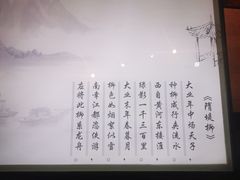 《隋堤柳》
大业年中炀天子
种柳成行夹流水
西自黄河东接淮
绿影一千三百里
大业末年春暮月
柳色如烟絮似雪
南幸江都恣佚游
应将此柳系龙舟